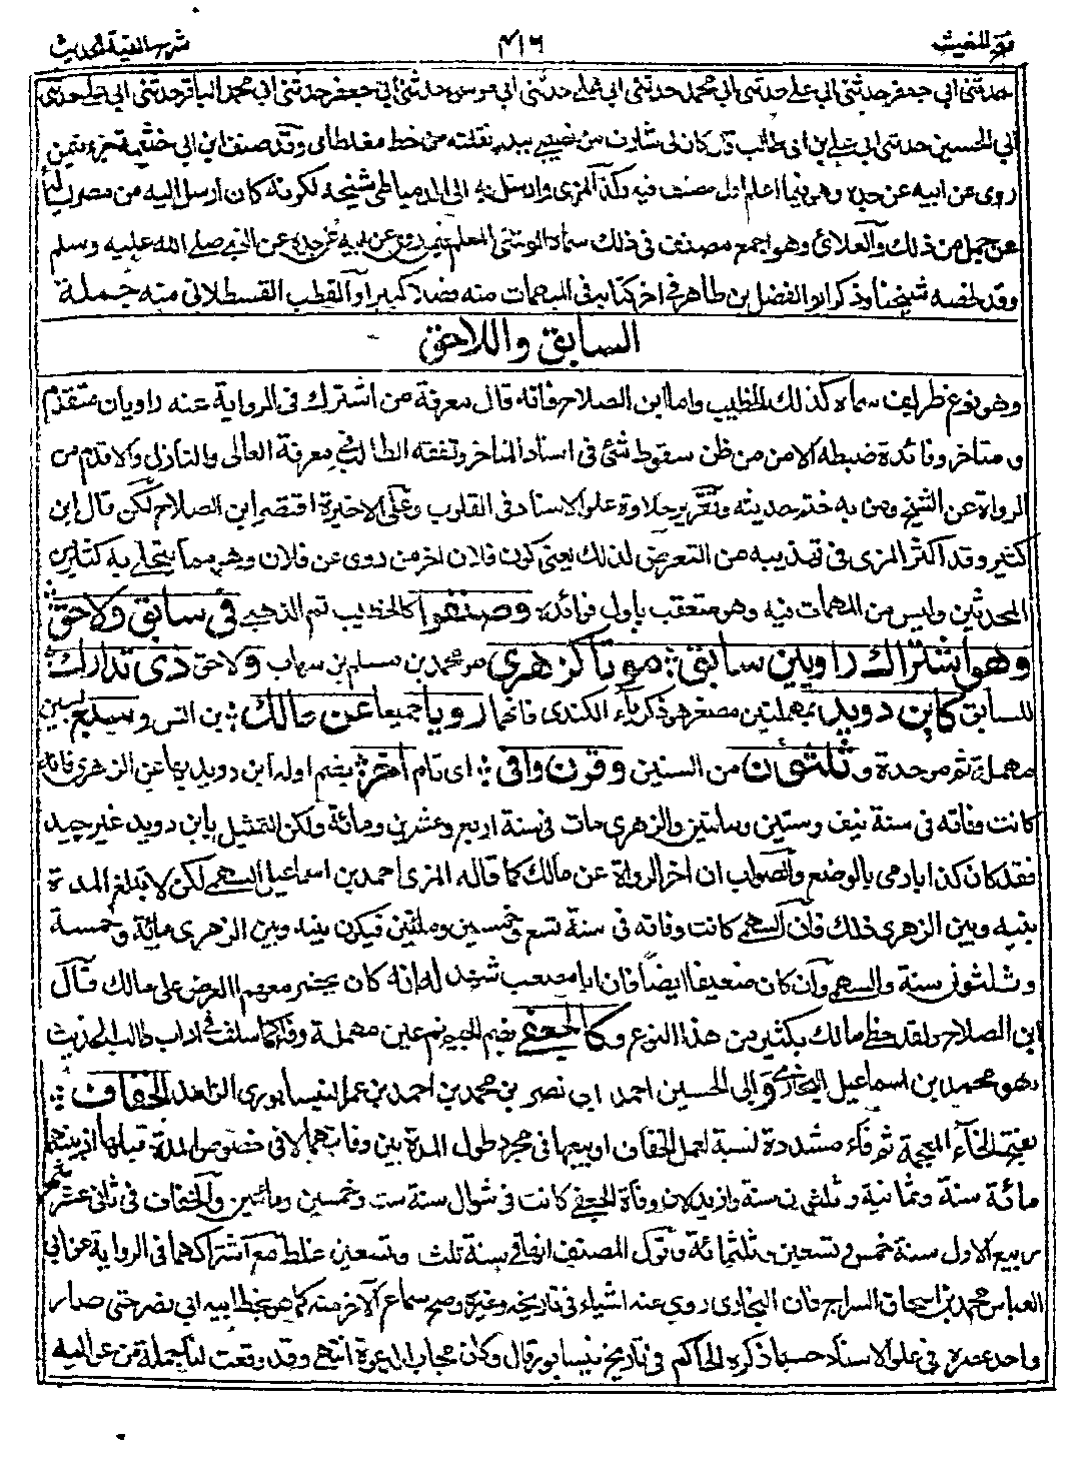 فتح المغيث ٤١٦ شرح الفية الحديث
حدثني ابي جعفر حدثني ابي علي حدثني ابي محمد حدثني ابي علي حدثني ابي موسى حدثني ابي جعفر حدثني ابي محمد الباقر حدثني ابي علي حدثني
ابي الحسين حدثني ابي علي بن ابي طالب قال كان لي شارف من نصيبي ببدر نقلته من خط مغلطاي وقد صنف ابن ابي خثيمة جزء فيمن
روى عن ابيه عن جده وهو فيما اعلم اول مصنف فيه وكذا المزي وارسل به الى الدمياطي شيخه لكونه كان ارسل اليه من مصر ليسأله
عن جمل من ذلك والعلائي وهو اجمع مصنف في ذلك سماه الوشي المعلم فيمن روى عن ابيه عن جده عن النبي صلے الله عليه وسلم
وقد لخصه شيخنا وذكر ابو الفضل بن طاهر في اخر كتابه في المبهمات منه فصلا كبيرا والقطب القسطلاني منه جملة
السابق واللاحق
وهو نوع ظريف سماه كذلك الخطيب واما ابن الصلاح فانه قال معرفة من اشترك في الرواية عنه راويان متقدم
و متاخر وفائدة ضبطه الامن من ظن سقوط شئ في اسناد المتاخر وتفقه الطالب في معرفة العالي والنازل والاقدم من
الرواة عن الشيخ ومن به ختم حديثه وتقرير حلاوة علو الاسناد في القلوب وعلى الاخيرة اقتصر ابن الصلاح لكن قال ابن
كثير وقد اكثر المزي في تهذيبه من التعرض لذلك يعني كون فلان اخر من روى عن فلان وهو مما يتحلى به كثير من
المحدثين وليس من المهمات فيه وهو متعقب باول فوائده وصنفوا كالخطيب ثم الذهبي في سابق ولاحق
وهو اشتراك راويين سابق موتا كزهري هو محمد بن مسلم بن شهاب ولاحق ذي تدارك
للسابق كابن دويد بمهملتين مصغر هو زكرياء الكندي فانهما رويا جميعا عن مالك بن انس وسبع بسين
مهملة ثم موحدة و ثلثون من السنين وقرن وافى اي تام اخر بضم اوله ابن دويد بها عن الزهري فانه
كانت وفاته في سنة نيف وستين ومائتين والزهري مات في سنة اربع وعشرين ومائة ولكن التمثيل بابن دويد غير جيد
فقد كان كذابا رمي بالوضع والصواب ان اخر الرواة عن مالك كما قاله المزي احمد بن اسماعيل السهمي لكن لا يبلغ المدة
بينه وبين الزهري ذلك فان السهمي كانت وفاته في سنة تسع وخمسين ومائتين فيكون بينه وبين الزهري مائة وخمسة
وثلثون سنة والسهمي وان كان ضعيفا ايضا فان ابا مصعب شهد له انه كان يحضر معهم العرض على مالك قال
ابن الصلاح ولقد حظي مالك بكثير من هذا النوع وكالجعفي بضم الجيم ثم عين مهملة وفاء كما سلف في اداب طالب الحديث
وهو محمد بن اسماعيل البخاري وابي الحسين احمد ابي نصر بن محمد بن احمد بن عمر النيسابوري الزاهد الخفاف
بفتح الخاء المعجمة ثم فاء مشددة نسبة لعمل الخفاف او بيعها في مجرد طول المدة بين وفاتهما لا في خصوص المدة قبلها اذ بينهما
مائة سنة وثمانية وثلثين سنة وازيد لان وفاة الجعفي كانت في شوال سنة ست وخمسين ومائتين والخفاف في ثاني عشر شهر
ربيع الاول سنة خمس وتسعين وثلثمائة وقول المصنف انها في سنة ثلث وتسعين غلط مع اشتراكهما في الرواية عن ابي
العباس محمد بن اسحاق السراج فان البخاري روى عنه اشياء في تاريخه وغيره وصح سماع الآخر منه كما هو بخط ابيه ابي نصر حتى صار
واحد عصره في علو الاسناد حسبما ذكره الحاكم في تاريخ نيسابور قال وكان مجاب الدعوة انتهى وقد وقعت لنا جملة من عواليه